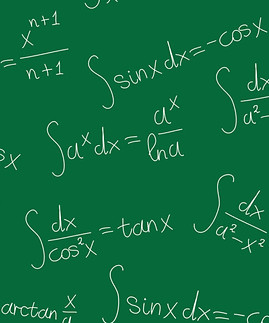 = x^{n+1}/(n+1)
∫sinx dx=-cosx
∫dx/a²-
∫aˣdx=aˣ/lna
sx
∫dx/cos²x=tanx
∫dx/a²-x²
arctan x/a
∫sinx dx=-co